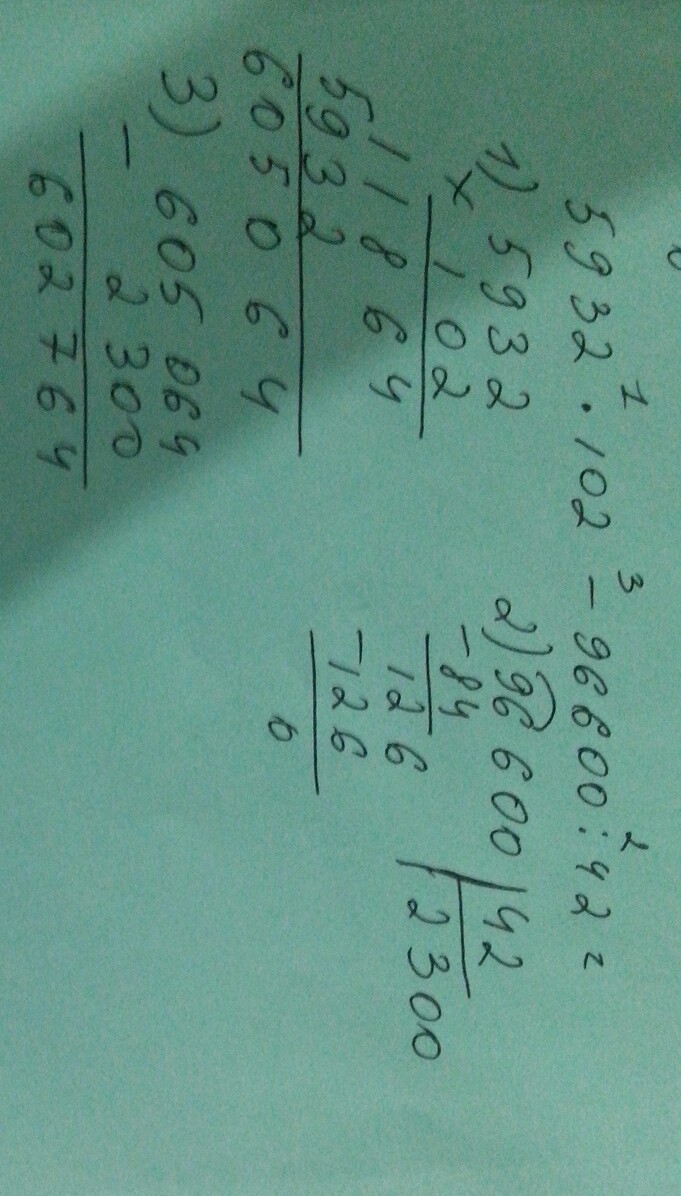 5932 · 102 - 96600 : 42 =
1 3 2
1) 5932
× 102
11864
5932
605064
2) 96600 | 42
-84 2300
126
-126
0
3) 605064
- 2300
602764